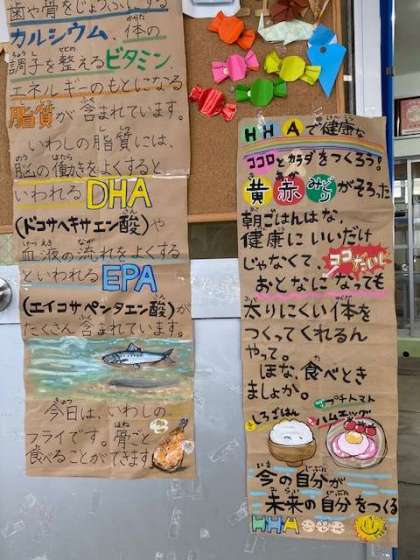 歯や骨をじょうぶにする
カルシウム、体の
調子を整えるビタミン、
エネルギーのもとになる
脂質が含まれています。
いわしの脂質には、
脳の働きをよくすると
いわれるDHA
(ドコサヘキサエン酸)や
血液の流れをよくする
といわれるEPA
(エイコサペンタエン酸)が
たくさん含まれています。
今日は、いわしの
フライです。骨ごと
食べることができます。
HHAで健康な
ココロとカラダをつくろう!
黄赤みどりがそろった
朝ごはんはな、
健康にいいだけ
じゃなくて、ココだいじ
おとなになっても
太りにくい体を
つくってくれるん
やって。
ほな、食べとき
ましょか。
しろごはん
プチトマト
ハムエッグ
今の自分が
未来の自分をつくる
HHA